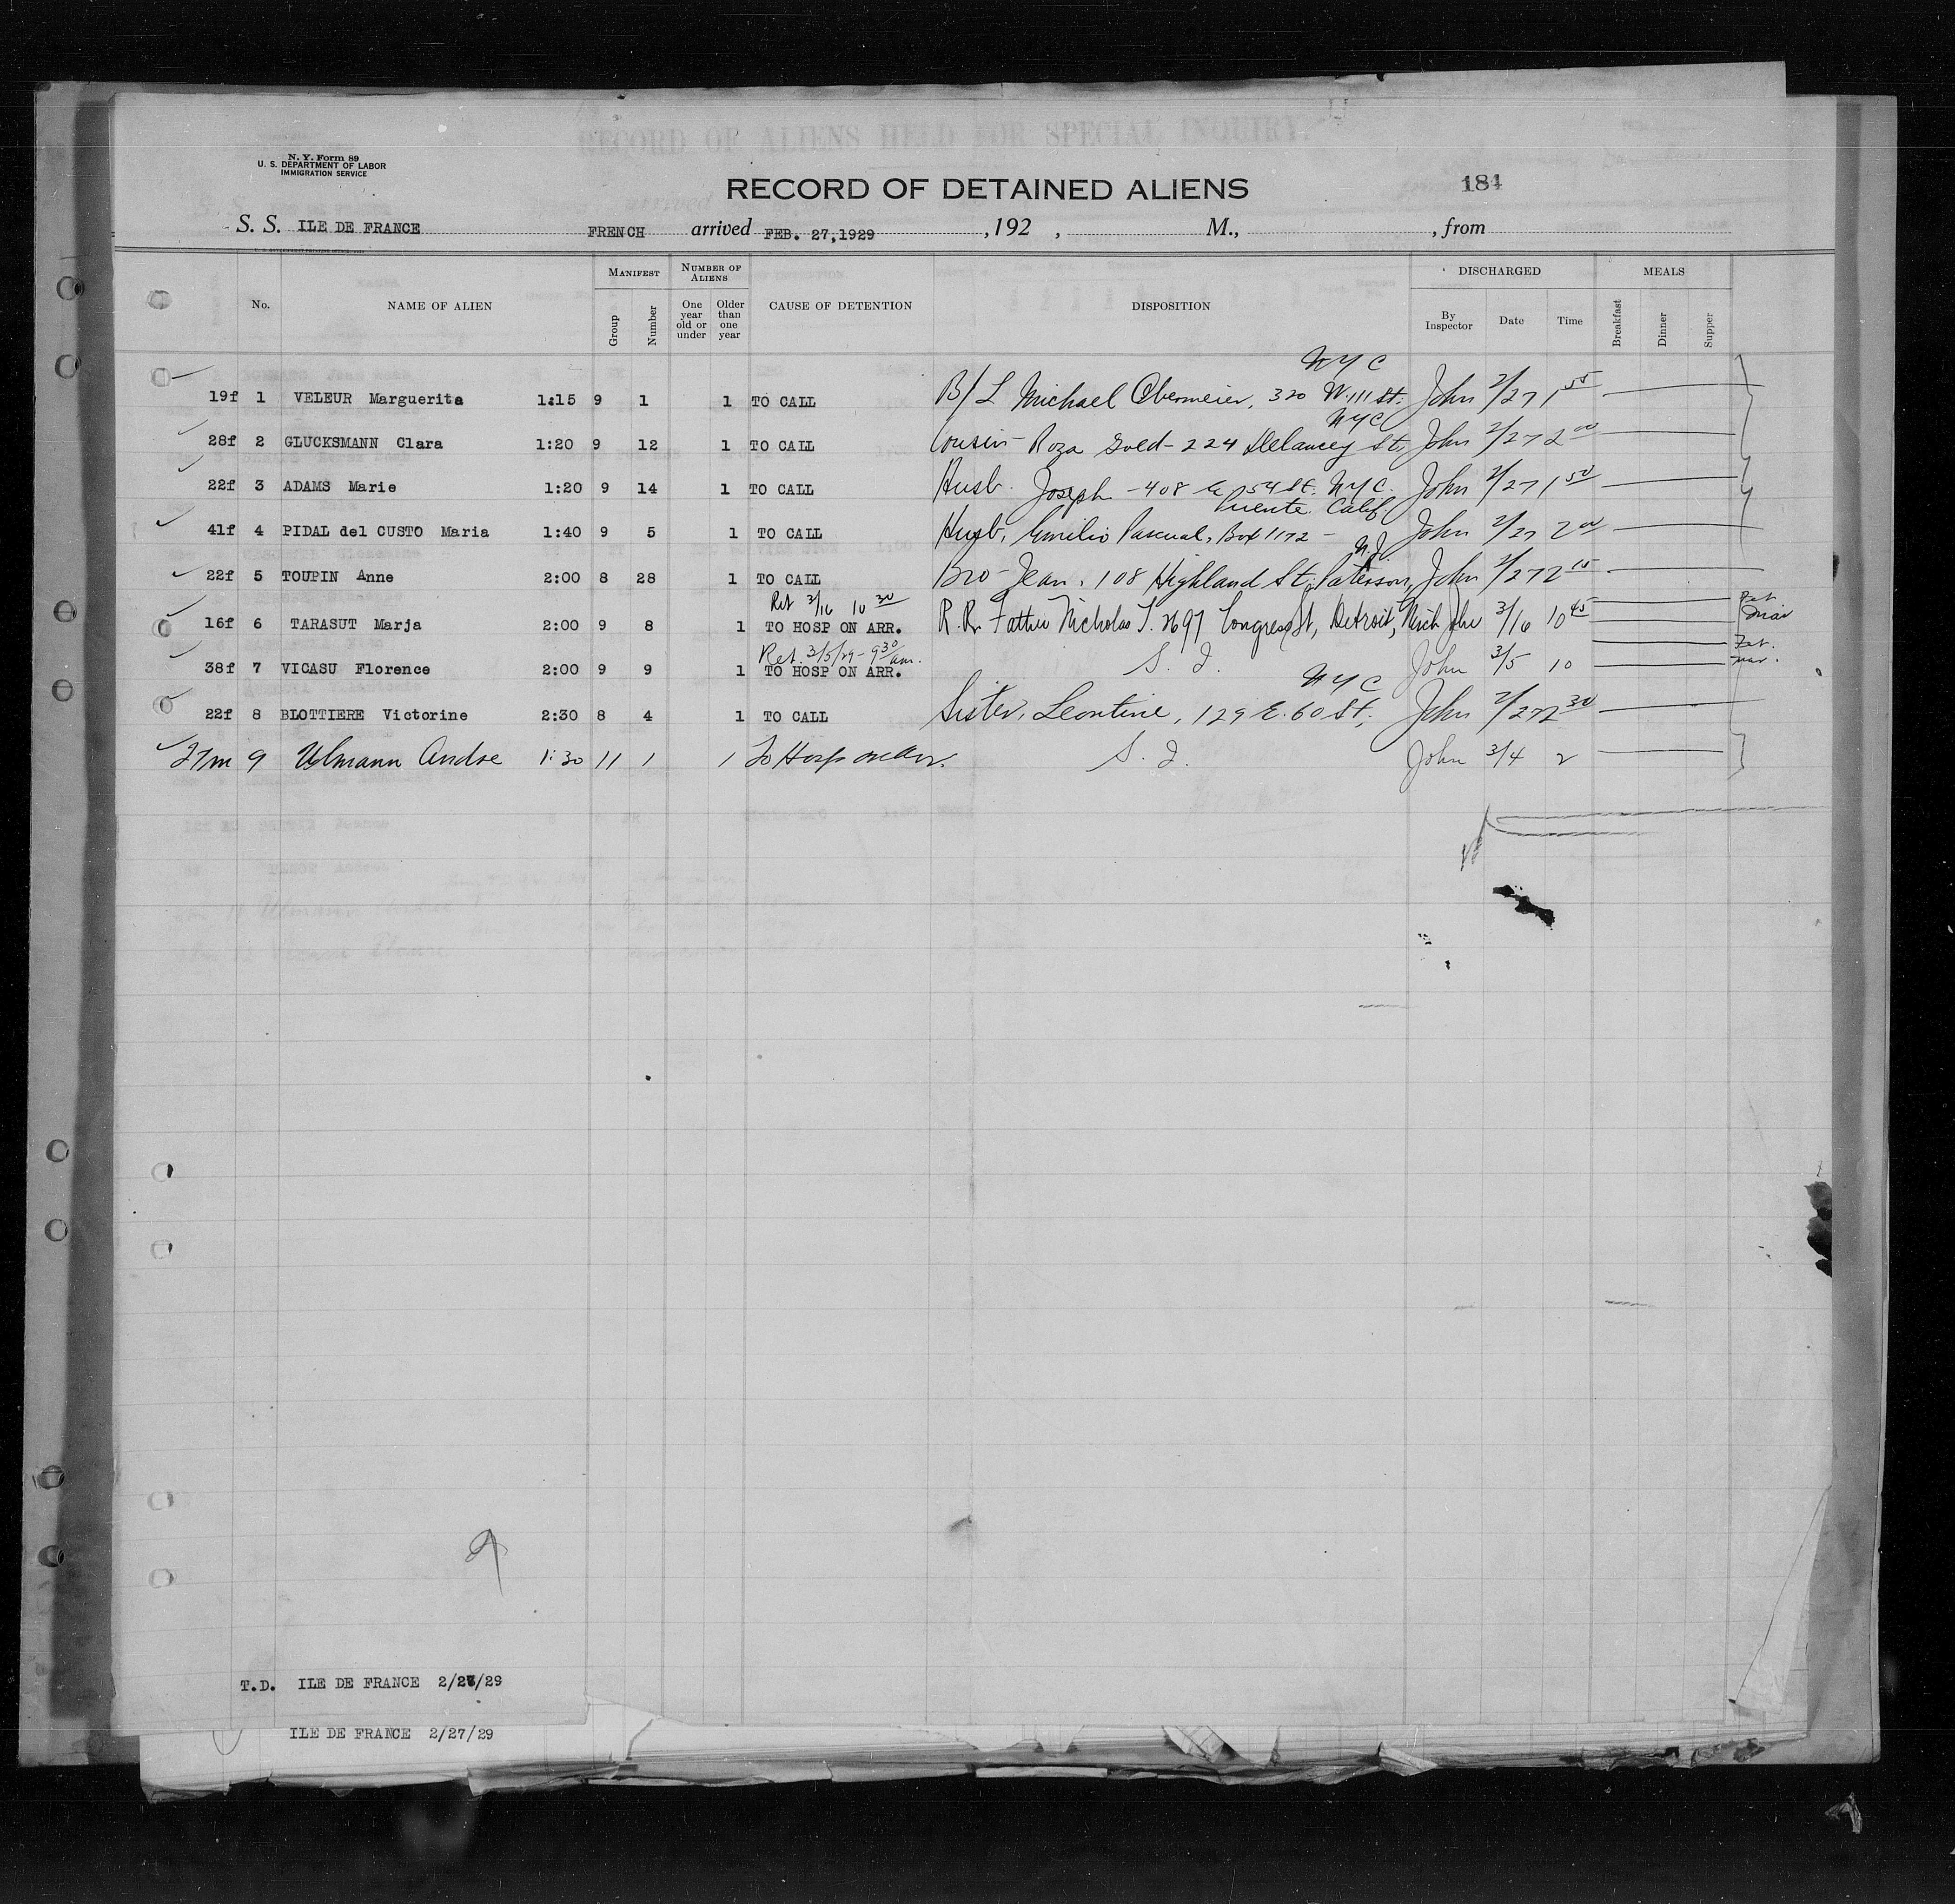 RECORD OF ALIENS HELD FOR SPECIAL INQUIRY.
N. Y. Form 89
U. S. DEPARTMENT OF LABOR
IMMIGRATION SERVICE
RECORD OF DETAINED ALIENS
184
S. S. ILE DE FRANCE FRENCH arrived FEB. 27,1929 , 192 , M., , from
No. NAME OF ALIEN MANIFEST Group Number NUMBER OF ALIENS One year old or under Older than one year CAUSE OF DETENTION DISPOSITION DISCHARGED By Inspector Date Time MEALS Breakfast Dinner Supper
NYC
19f 1 VELEUR Marguerita 1:15 9 1 1 TO CALL B/L Michael Obermeier, 320 W. 111 St. John 2/27 1 55
NYC
28f 2 GLUCKSMANN Clara 1:20 9 12 1 TO CALL Cousin - Roza Gold - 224 Delancey St, John 2/27 2 00
22f 3 ADAMS Marie 1:20 9 14 1 TO CALL Husb. Joseph - 408 E 54 St. NYC. John 2/27 1 50
Puente Calif.
41f 4 PIDAL del CUSTO Maria 1:40 9 5 1 TO CALL Husb, Emilio Pascual, Box 1172 - John 2/27 2 00
N.J.
22f 5 TOUPIN Anne 2:00 8 28 1 TO CALL Bro - Jean, 108 Highland St, Paterson, John 2/27 2 15
Ret 3/16 10 30
16f 6 TARASUT Marja 2:00 9 8 1 TO HOSP ON ARR. R.R. Father Nicholas T. 2697 Congress St, Detroit, Mich John 3/16 10 45
Ret. 3/5/29 - 9 30 am.
38f 7 VICASU Florence 2:00 9 9 1 TO HOSP ON ARR. S. I. John 3/5 10
NYC
22f 8 BLOTTIERE Victorine 2:30 8 4 1 TO CALL Sister, Leontine, 129 E. 60 St, John 2/27 2 30
27m 9 Ulmann Andre 1:30 11 1 1 To Hosp on Arr. S. I. John 3/4 2
9
T.D. ILE DE FRANCE 2/27/29
ILE DE FRANCE 2/27/29